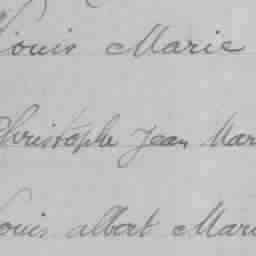 Louis Marie
Christophe Jean Mar
Louis albert Mari